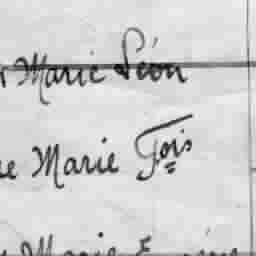 r Marie Léon
ne Marie Fois
Marie